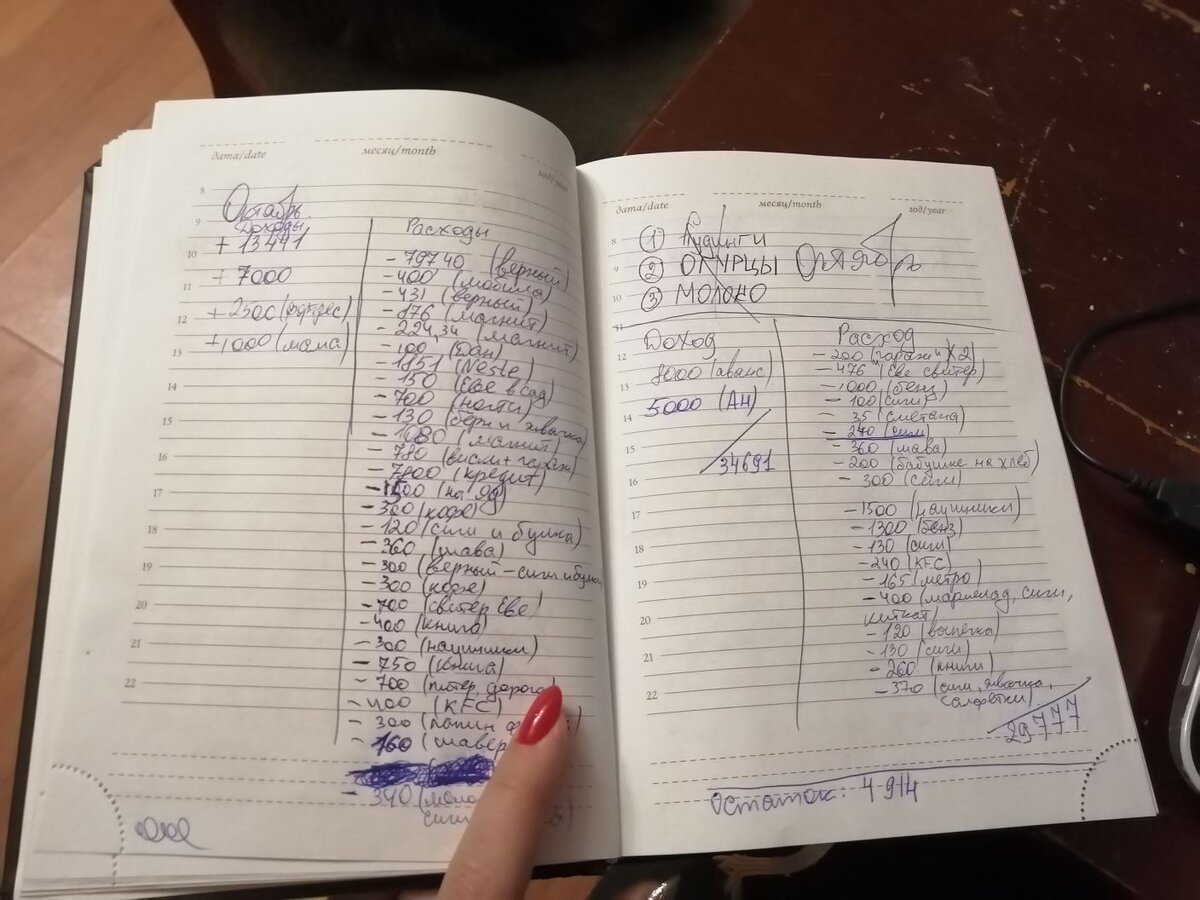 дата/date месяц/month год/year
8
Октябрь
9
Доходы Расходы
+ 13441
10
- 797 40 (верный)
+ 7000 - 400 (мобила)
11 - 431 (верный)
- 176 (магнит)
+ 2500 - 224,34 (магнит)
12
+ 1000 (мама) - 100 (Дан)
13 - 1851 (Neste)
- 150 (Еве в сад)
14
- 700 (ногти)
- 130
15
- 1080 (магнит)
16 - 780
- 7000 (кредит)
17
- 300 (кофе)
18 - 120 (сиги и булка)
- 360 (шава)
19 - 300 (верный - сиги и
- 300 (кофе)
20 - 700 (свитер Еве)
- 400 (книга)
21 - 300 (наушники)
- 750 (книга)
22 - 700 (питер, дорога)
- 400 (KFC)
- 300
- 160
- 340
дата/date месяц/month год/year
8 1 Пудинги
9 2 ОГУРЦЫ Октябрь
10 3 МОЛОКО
11
Доход Расход
12 - 200 (гаражи) X2
8000 (аванс) - 476 (Еве свитер)
13 - 1000 (бенз)
5000 (АН) - 100 (сиги)
14 - 35 (сметана)
- 240 (сиги)
15 - 360 (шава)
34691 - 200 (бабушке на хлеб)
16 - 300 (сиги)
17 - 1500 (наушники)
- 1300 (бенз)
18 - 130 (сиги)
- 240 (KFC)
19 - 165 (метро)
- 400 (мармелад, сиги,
20 киткат)
- 120 (выпечка)
21 - 130 (сиги)
- 260 (книги)
22 - 370 (сиги, жвачка,
салфетки)
29777
Остаток: 4 914